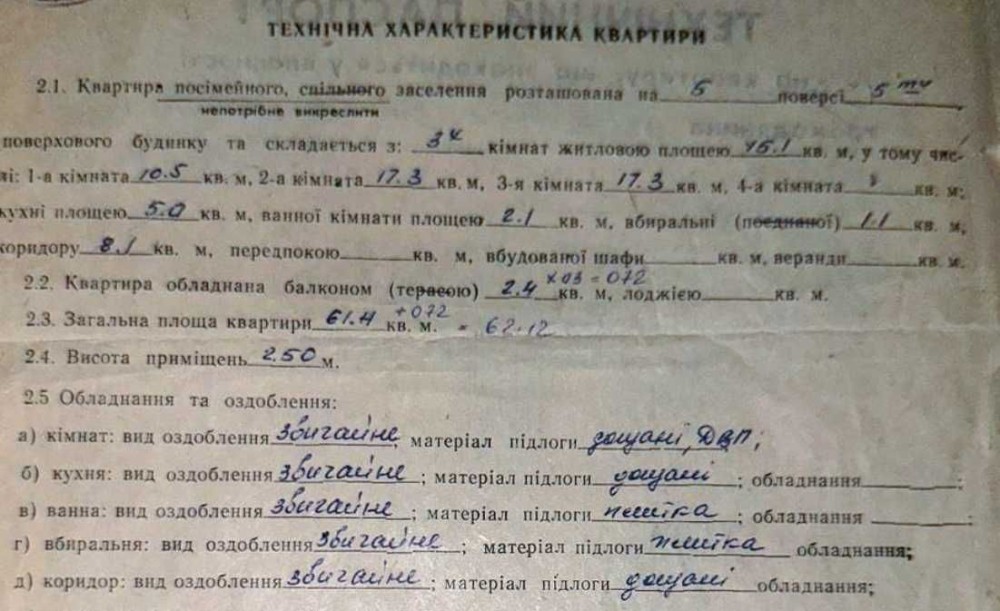 ТЕХНІЧНА ХАРАКТЕРИСТИКА КВАРТИРИ
2.1. Квартира посімейного, спільного заселення розташована на 5 поверсі 5ти
непотрібне викреслити
поверхового будинку та складається з: 3х кімнат житловою площею 45.1 кв. м, у тому чис-
лі: 1-а кімната 10.5 кв. м, 2-а кімната 17.3 кв. м, 3-я кімната 17.3 кв. м, 4-а кімната кв. м;
кухні площею 5.0 кв. м, ванної кімнати площею 2.1 кв. м, вбиральні (поєднаної) 1.1 кв. м,
коридору 8.1 кв. м, передпокою кв. м, вбудованої шафи кв. м, веранди кв. м.
2.2. Квартира обладнана балконом (терасою) 2.4 х03 = 072 кв. м, лоджією кв. м.
2.3. Загальна площа квартири 61.4 +072 кв. м. = 62.12
2.4. Висота приміщень 2.50 м.
2.5 Обладнання та оздоблення:
а) кімнат: вид оздоблення звичайне, матеріал підлоги дощані, ДВП;
б) кухня: вид оздоблення звичайне; матеріал підлоги дощані; обладнання ;
в) ванна: вид оздоблення звичайне; матеріал підлоги плитка; обладнання ;
г) вбиральня: вид оздоблення звичайне; матеріал підлоги плитка обладнання;
д) коридор: вид оздоблення звичайне; матеріал підлоги дощані обладнання;